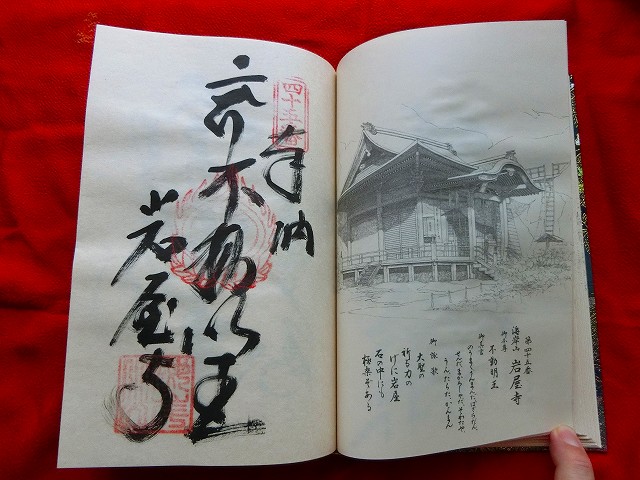 第四十五番
海岸山 岩屋寺
御本尊
不動明王
御真言
のうまくさんまんだばざらだん、
せんだまかろしゃだ、そわたや、
うんたらた、かんまん
御詠歌
大聖の
祈る力の
げに岩屋
石の中にも
極楽ぞある
四十五番
奉納
不動明王
岩屋寺